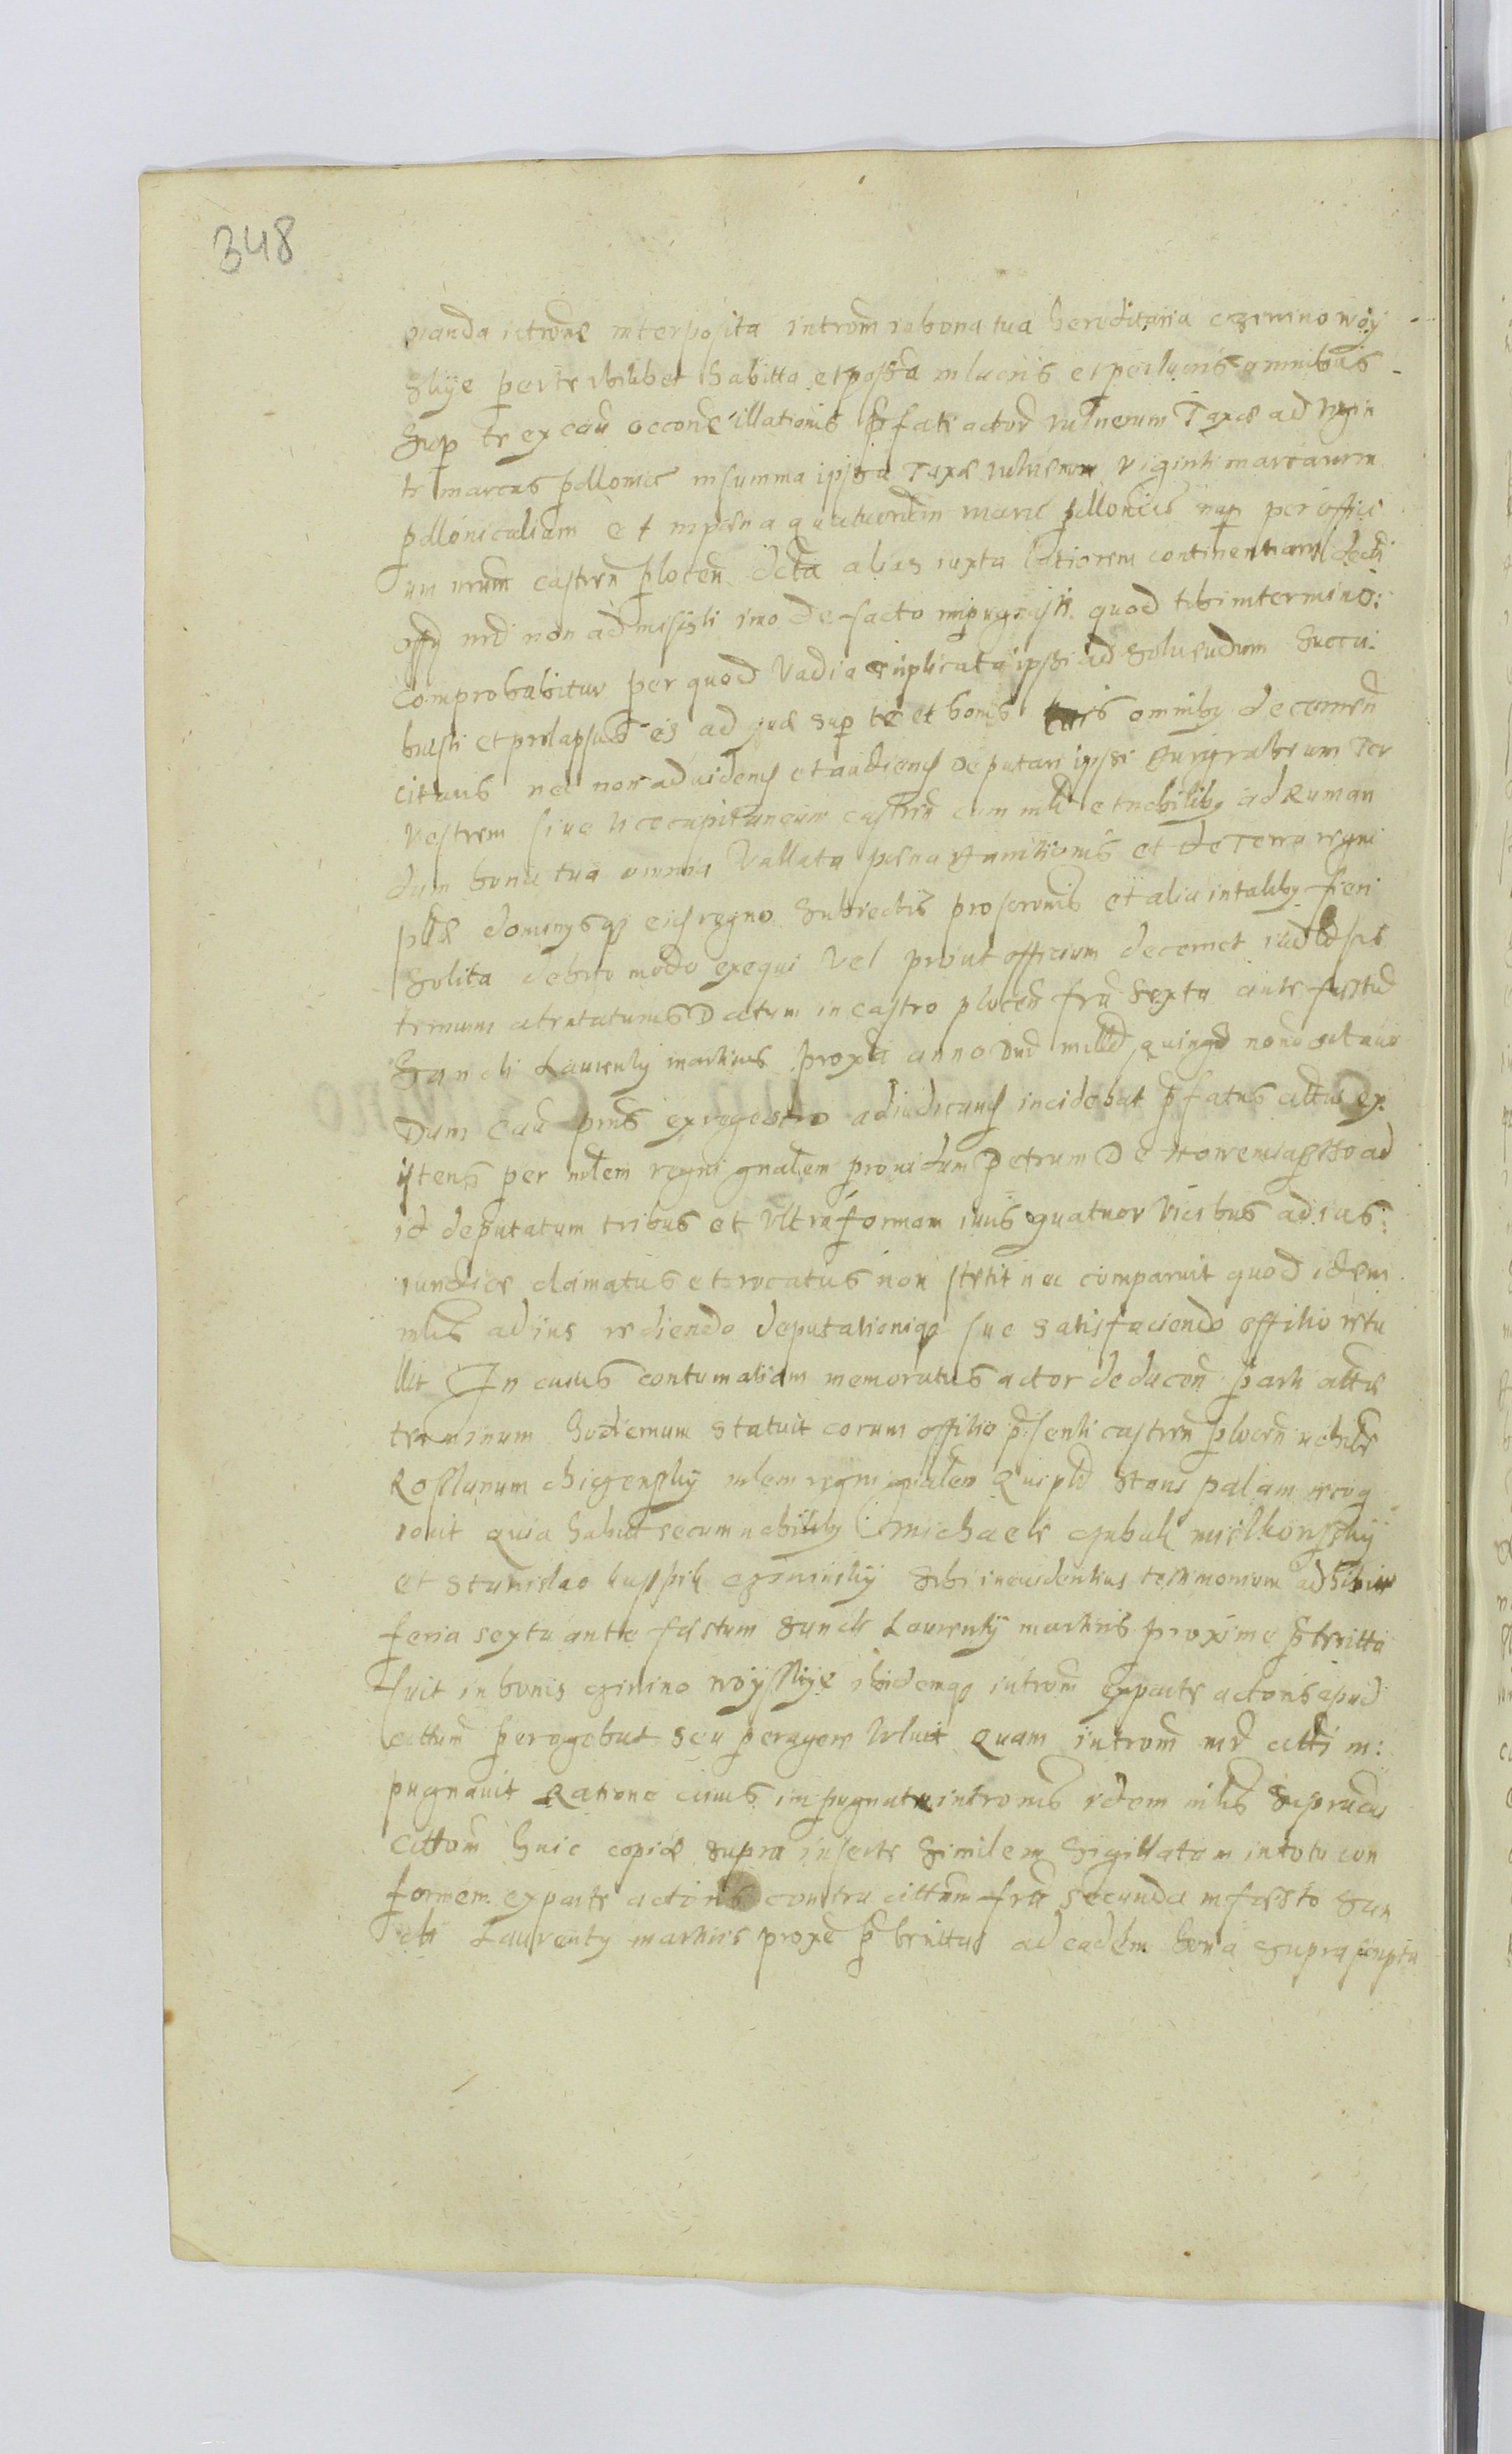 348
randa ictione interposita introm in bona tua hereditaria czirnino woy
sliye per te ubilibet habitta et possa in lucris et perlucris omnibus
sup te ex cau occone illationis pfate actori vulnerum Taxae ad vigin
ti marcas pollonice in summa ipsa Taxae vulnerum viginti marcarum
pollonicaliam et in pena quatuordecim marc pollonicis nup per offici
um nrum castren plocen dcta alias iuxta latiorem continentiam decti
offy nrd non admisisti imo de facto impugnasti quod tibi in termino:
comprobabitur per quod vadia implicata ipsi ad soluendum succu:
buisti et prolapsus es ad quae sup te et bonis tuis omniby decernen
citaris nec non ad vidend et audiend deputari ipsi Burgrabium Tor
vestrem siue vicecapitaneum castren cum mli et nobiliby ad Ruman
dum bona tua omnia Vallata pena bannitionis et de Terra regni
pllae dominysq eid regno subiectis proscronis et alia in taliby fieri
solita debito modo exequi vel prout officium decernet iudld sis
terminum attentaturus Datum in castro plocen fria Sexta ante festud
Sancti Laurenty martiris proxa anno dnd milld quingd nono octauo
Dum cau pns ex regestro adiudicand incidebat pfatus citus ex
istens per mlem regni gnalem prouidum Petrum De Nowemiassto ad
id deputatum tribus et vltra formam iuris quatuor vicibus ad ius:
iuridice clamatus et vocatus non stetit nec comparuit quod idem
mlis ad ius rediendo deputationiq sue satisfaciendo offitio retu
llit In cuius contumatiam memoratus actor deducen parti citte
terminum hodiernum statuit coram offitio psenti castren plocen nobile
Roslanum chigenssky mlem regni gnalem Qui pld stans palam recog
nouit quia habuit secum nobiliby Michaele Czubak mielkowssky
et Stanislao kasspik czirninsky sibi in euidentius testimonium adhibitis
feria sexta ante festum sancti Laurenty martiris proxime pteritta
fuit in bonis czirino woysslye ibidemq introm ex parte actoris apud
cittum peragebat seu peragere voluit Quam introm mrd citti im:
pugnauit Ratione cuius impugnate intromis idem mlis supradcus
cittom huic copiae supra inserte similem sigillatam in totu con
formem ex parte actoris contra cittum fria secunda in festo San
cti Laurenty martiris proxe pteritta ad eadem bona suprascripta